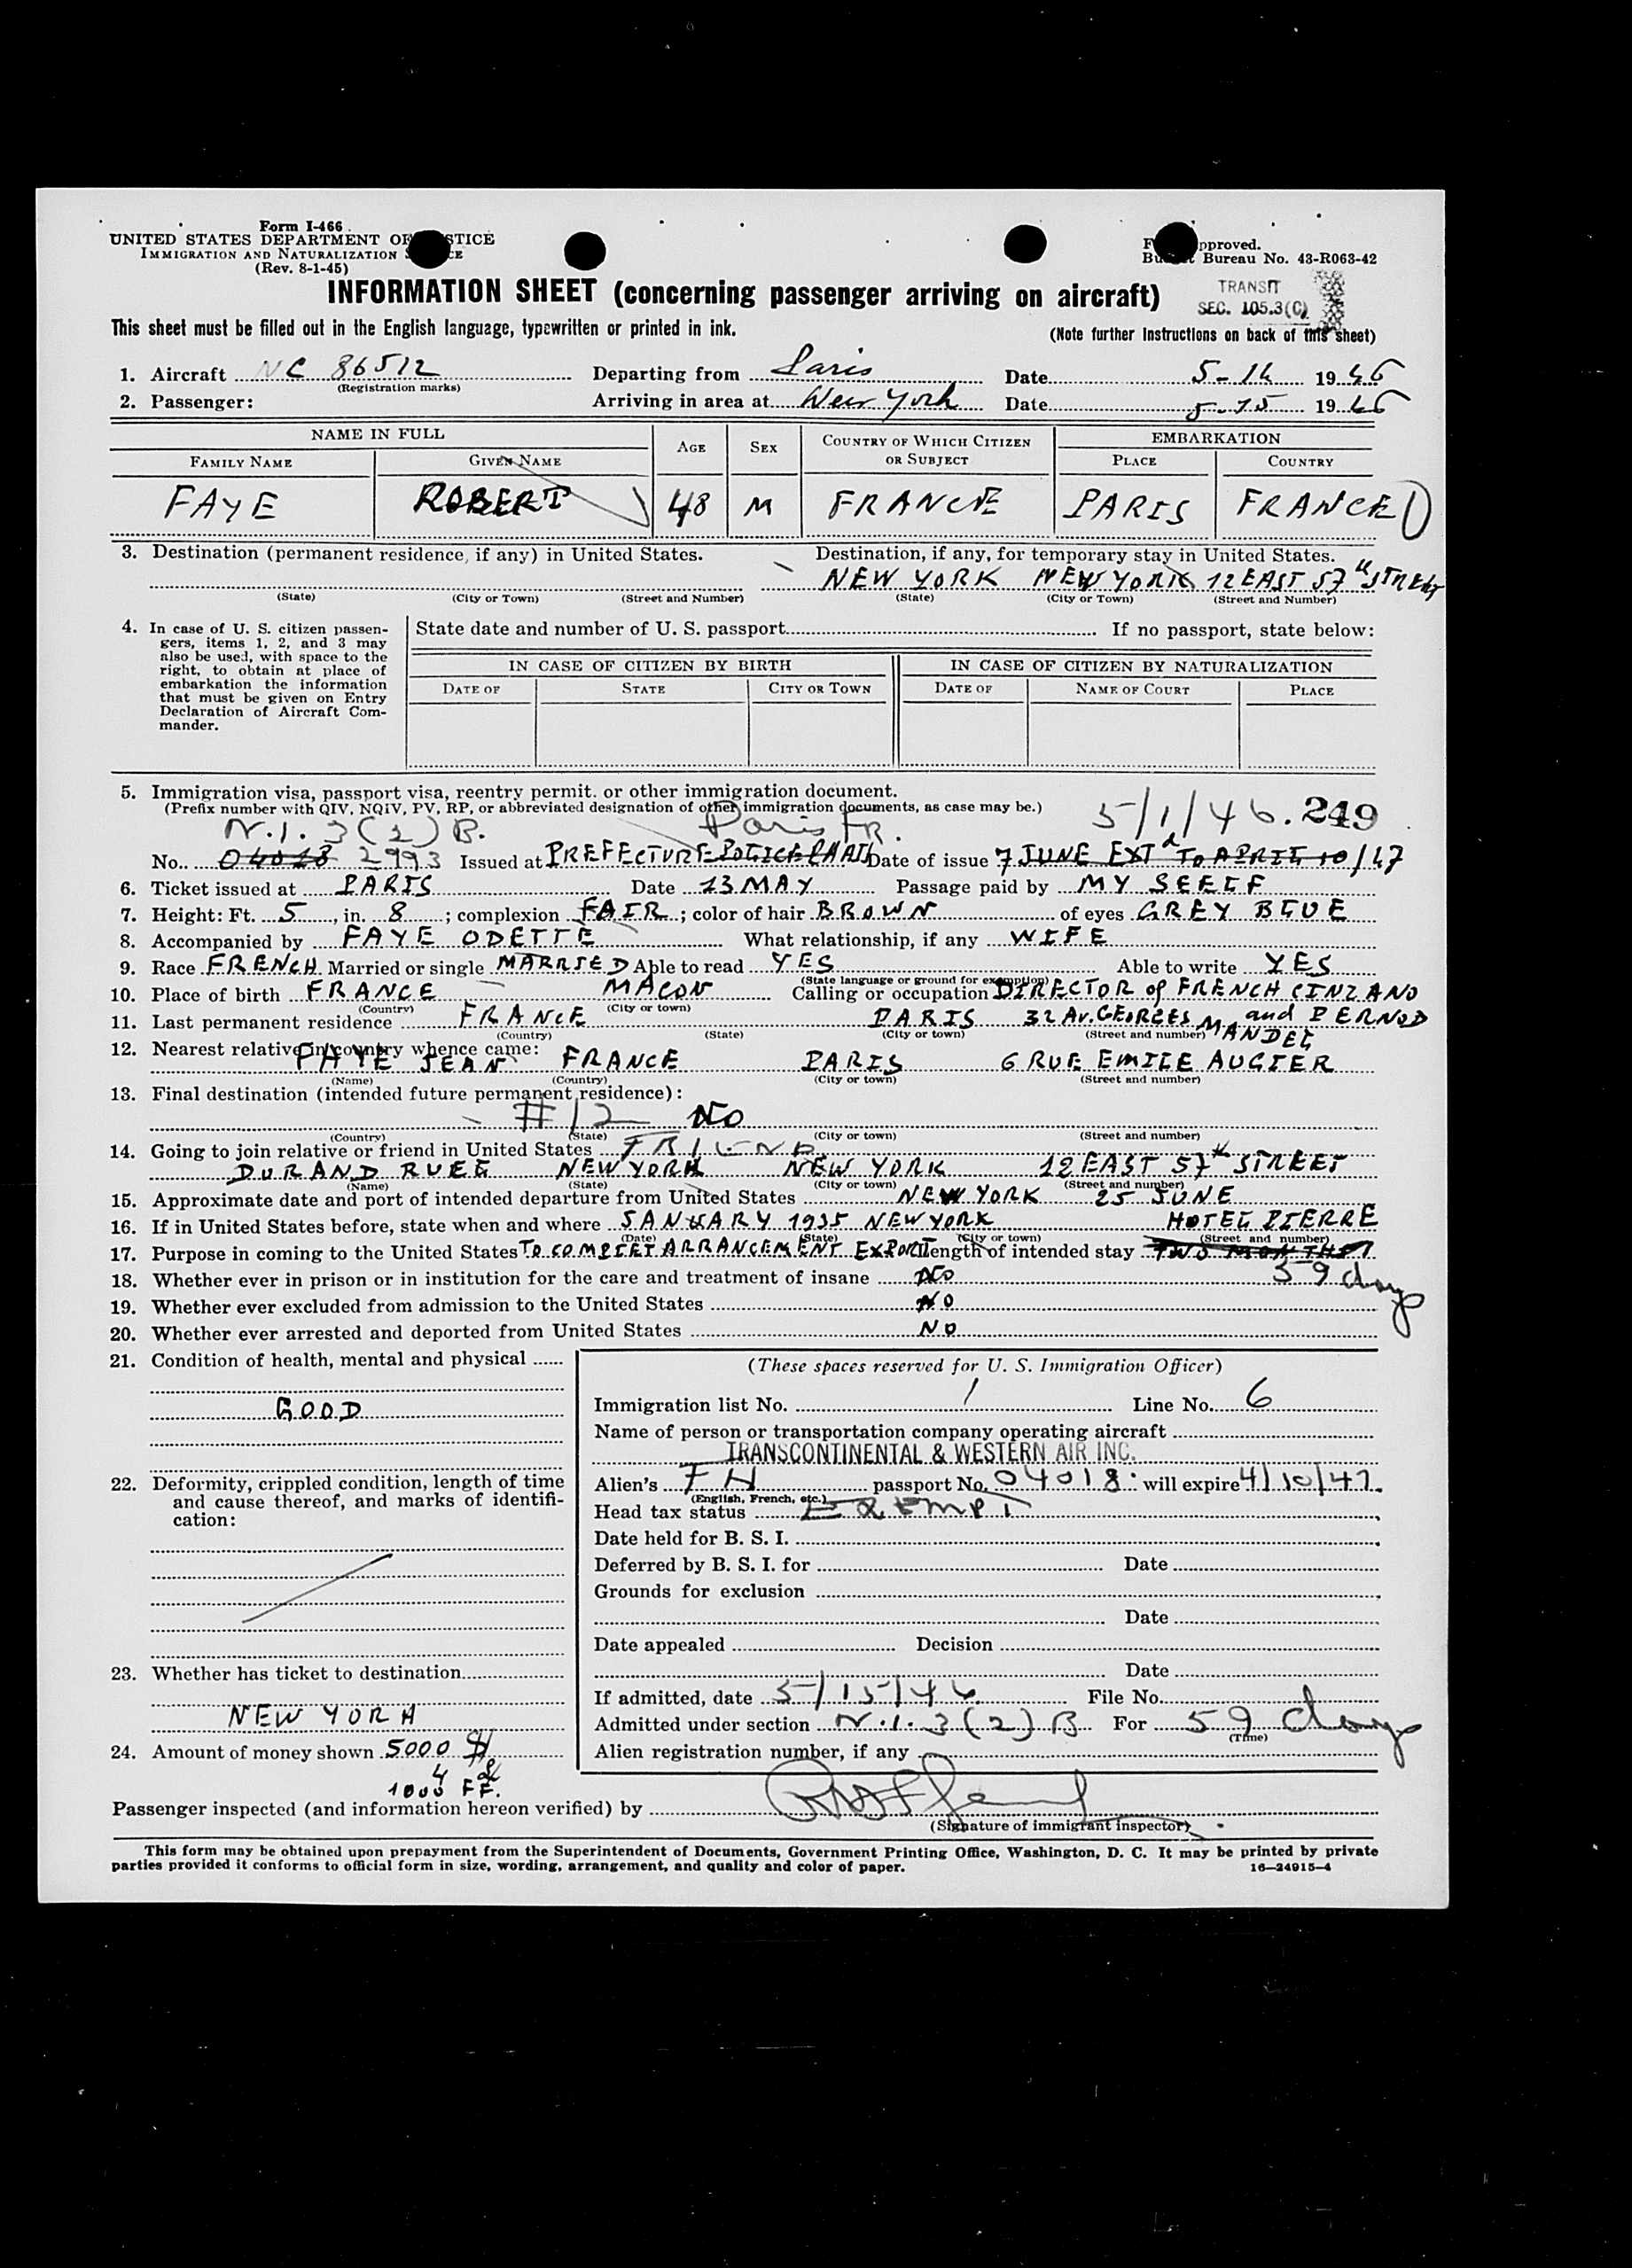 Form I-466
UNITED STATES DEPARTMENT OF STICE
IMMIGRATION AND NATURALIZATION CE
(Rev. 8-1-45)
pproved.
Bureau No. 43-R063-42
INFORMATION SHEET (concerning passenger arriving on aircraft)
TRANSIT
SEC. 105.3(C)
This sheet must be filled out in the English language, typewritten or printed in ink.
(Note further instructions on back of this sheet)
1. Aircraft NC 86512 Departing from Paris Date 5-14 1946
(Registration marks)
2. Passenger: Arriving in area at New York Date 5-15 1946
NAME IN FULL AGE SEX COUNTRY OF WHICH CITIZEN OR SUBJECT EMBARKATION
FAMILY NAME GIVEN NAME PLACE COUNTRY
FAYE ROBERT 48 M FRANCE PARIS FRANCE
3. Destination (permanent residence, if any) in United States. Destination, if any, for temporary stay in United States.
NEW YORK NEW YORK 12 EAST 57th STREET
(State) (City or Town) (Street and Number) (State) (City or Town) (Street and Number)
4. In case of U. S. citizen passen-
gers, items 1, 2, and 3 may
also be used, with space to the
right, to obtain at place of
embarkation the information
that must be given on Entry
Declaration of Aircraft Com-
mander.
State date and number of U. S. passport If no passport, state below:
IN CASE OF CITIZEN BY BIRTH IN CASE OF CITIZEN BY NATURALIZATION
DATE OF STATE CITY OR TOWN DATE OF NAME OF COURT PLACE
5. Immigration visa, passport visa, reentry permit, or other immigration document.
(Prefix number with QIV, NQIV, PV, RP, or abbreviated designation of other immigration documents, as case may be.)
N.I. 3(2)B. Paris FR. 5/1/46. 249
No. 04018 2993 Issued at PREFECTURE POLICE PARIS Date of issue 7 JUNE EXTd TO APRIL 10/47
6. Ticket issued at PARIS Date 13 MAY Passage paid by MY SEELF
7. Height: Ft. 5, in. 8; complexion FAIR; color of hair BROWN of eyes GREY BLUE
8. Accompanied by FAYE ODETTE What relationship, if any WIFE
9. Race FRENCH Married or single MARRIED Able to read YES Able to write YES
(State language or ground for exemption)
10. Place of birth FRANCE MACON Calling or occupation DIRECTOR of FRENCH CINZANO
(Country) (City or town) and PERNOD
11. Last permanent residence FRANCE PARIS 32 AV. GEORGES MANDEL
(Country) (State) (City or town) (Street and number)
12. Nearest relative in country whence came:
FAYE JEAN FRANCE PARIS 6 RUE EMILE AUGIER
(Name) (Country) (City or town) (Street and number)
13. Final destination (intended future permanent residence):
#12 NO
(Country) (State) (City or town) (Street and number)
14. Going to join relative or friend in United States FRIEND
DURAND RUEL NEW YORK NEW YORK 12 EAST 57th STREET
(Name) (State) (City or town) (Street and number)
15. Approximate date and port of intended departure from United States NEW YORK 25 JUNE
16. If in United States before, state when and where JANUARY 1935 NEW YORK HOTEL PIERRE
(Date) (State) (City or town) (Street and number)
17. Purpose in coming to the United States TO COMPLET ARRANGEMENT EXPORT Length of intended stay TWO MONTHS
59 days
18. Whether ever in prison or in institution for the care and treatment of insane NO
19. Whether ever excluded from admission to the United States NO
20. Whether ever arrested and deported from United States NO
21. Condition of health, mental and physical
GOOD
22. Deformity, crippled condition, length of time
and cause thereof, and marks of identifi-
cation:
23. Whether has ticket to destination
NEW YORK
24. Amount of money shown 5000 $
4
1000 FF.
(These spaces reserved for U. S. Immigration Officer)
Immigration list No. 1 Line No. 6
Name of person or transportation company operating aircraft
TRANSCONTINENTAL & WESTERN AIR INC.
Alien's FH passport No. 04018 will expire 4/10/47
(English, French, etc.)
Head tax status Exempt
Date held for B. S. I.
Deferred by B. S. I. for Date
Grounds for exclusion
Date
Date appealed Decision
Date
If admitted, date 5/15/46 File No.
Admitted under section N.I. 3(2)B For 59 days
(Time)
Alien registration number, if any
Passenger inspected (and information hereon verified) by
(Signature of immigrant inspector)
This form may be obtained upon prepayment from the Superintendent of Documents, Government Printing Office, Washington, D. C. It may be printed by private
parties provided it conforms to official form in size, wording, arrangement, and quality and color of paper. 16—24915-4